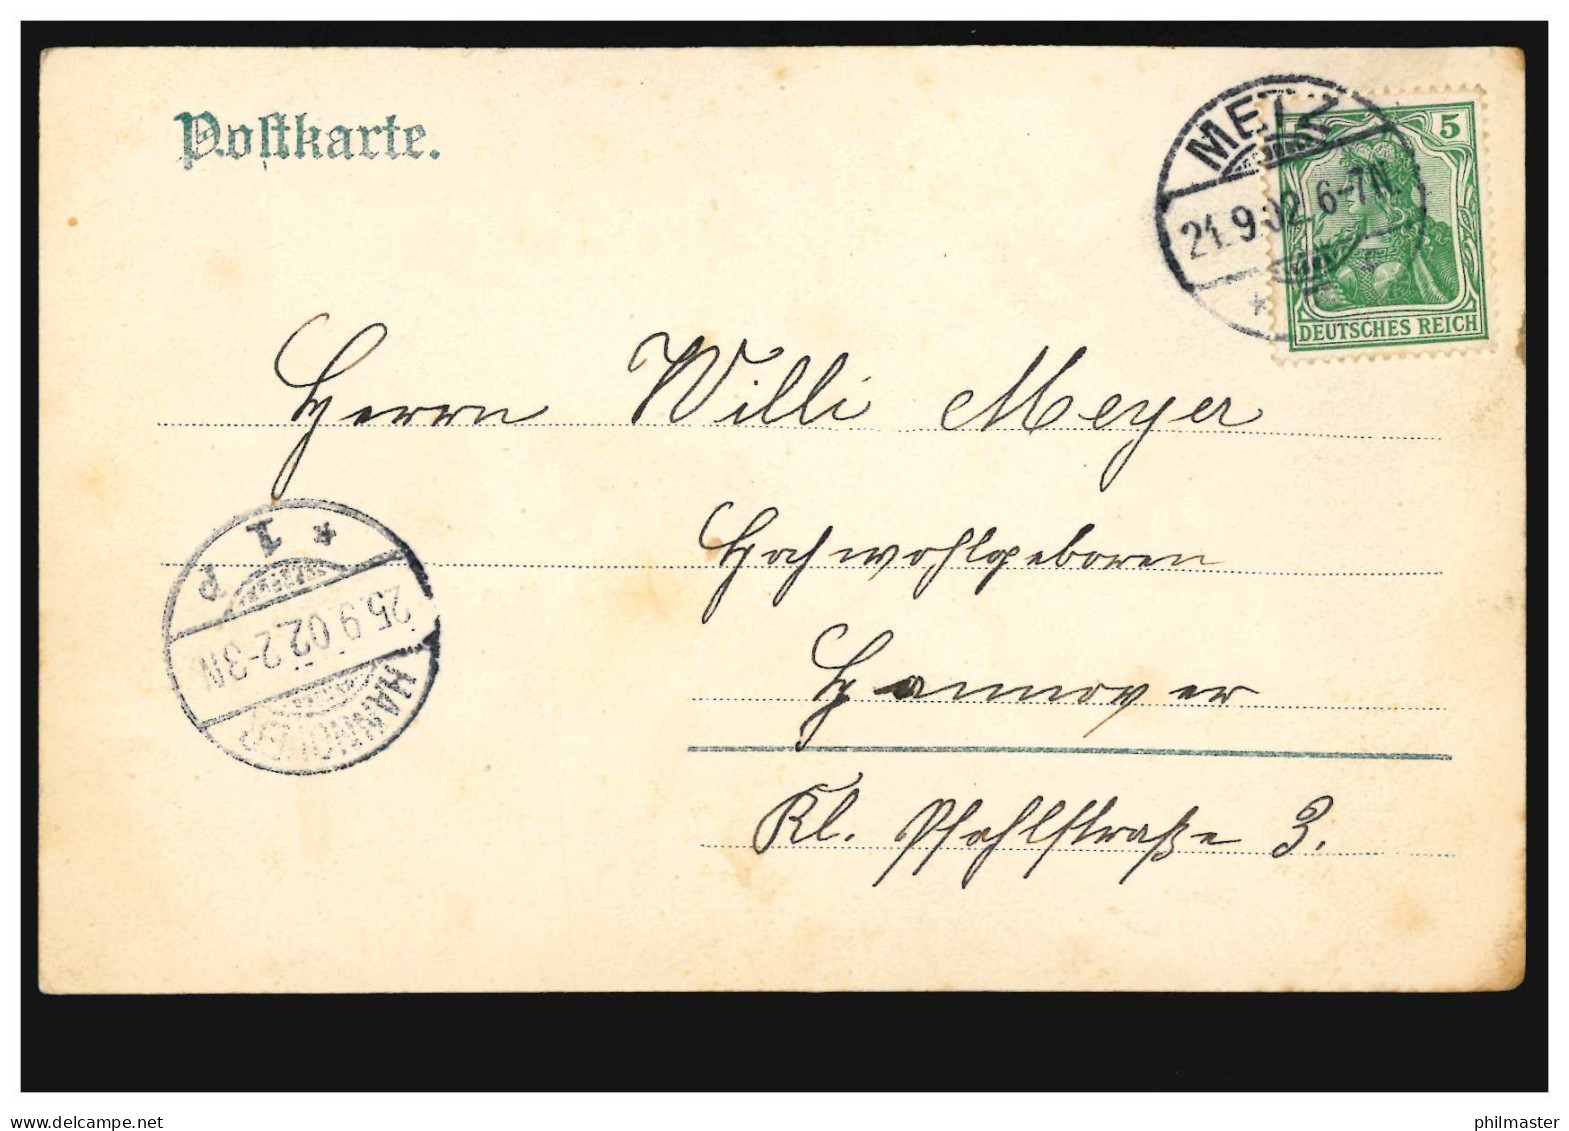 Postkarte.
METZ
21.9.02. 6-7N.
5
DEUTSCHES REICH
Herrn Willi Meyer
Hochwohlgeboren
Hannover
Kl. Pfahlstraße 3.
* 1 P
25.9.02. 2-3N
HANNOVER
the-carte.net
philmaster